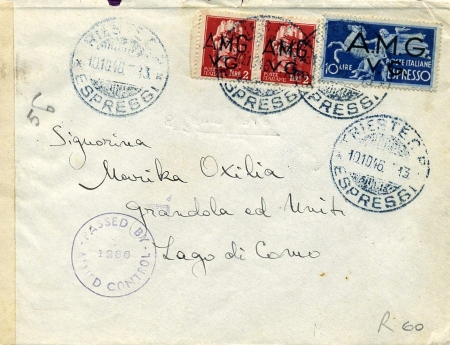 A.M.G. A.M.G. A.M.G.
V.G. V.G. V.G.
POSTE ITALIANE
LIRE 2 LIRE 2 10 LIRE ESPRESSO
TRIESTE C.P.
10.10.46. - 13
ESPRESSI
TRIESTE C.P.
10.10.46. - 13
ESPRESSI
56
Signorina
Marika Oxilia
Grandola ed Uniti
Lago di Como
PASSED BY
1286
CONTROL
R 60